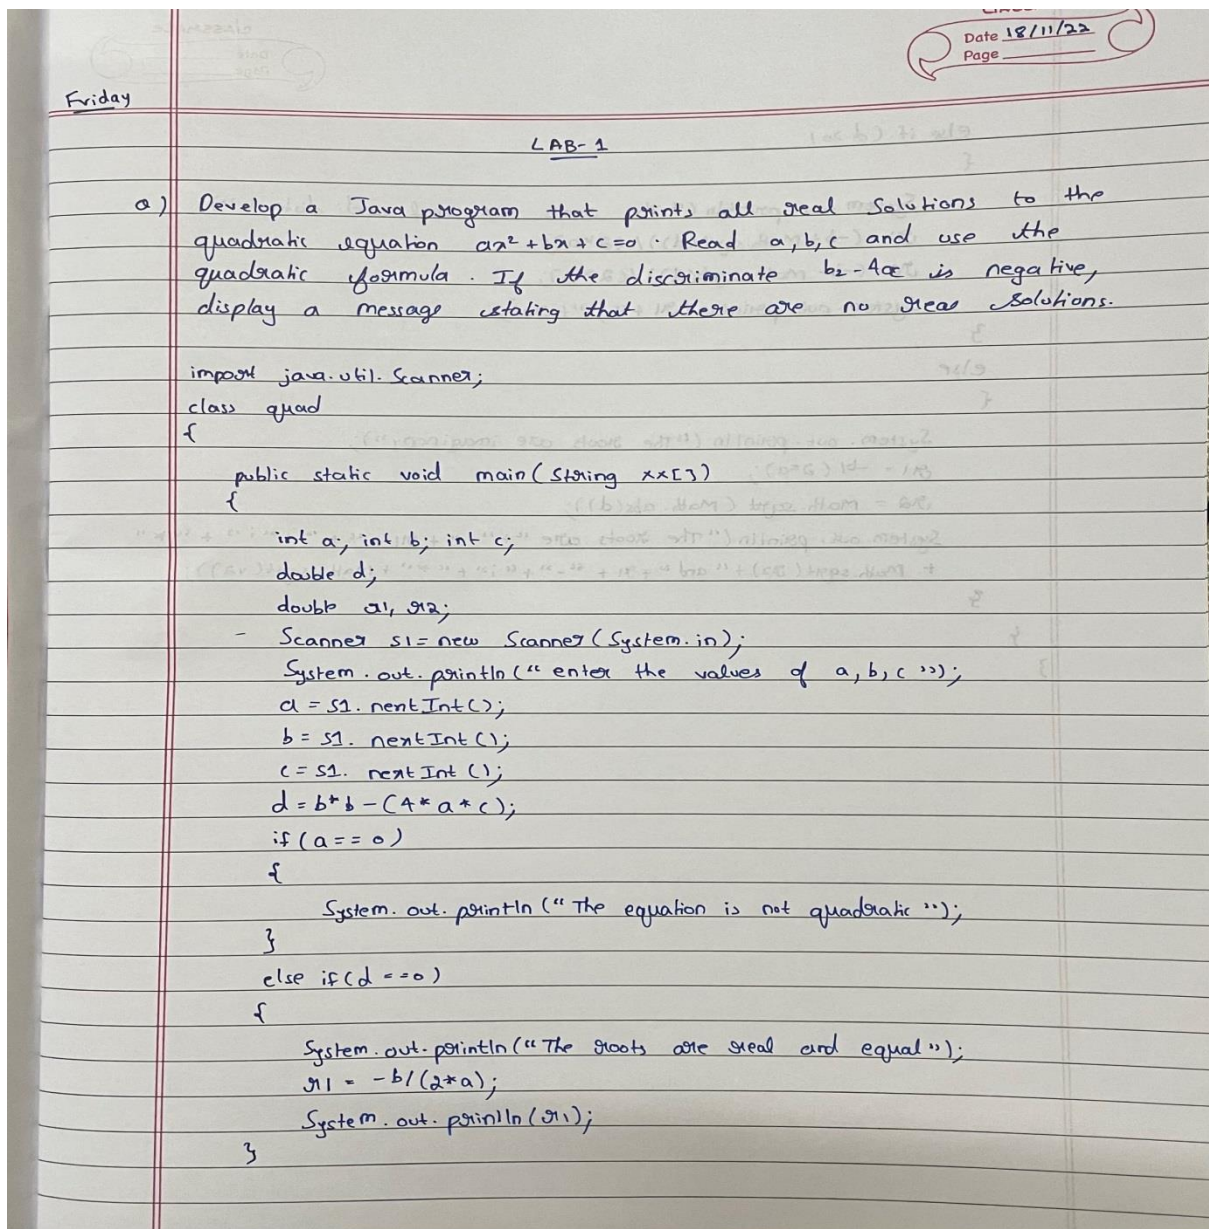 Date 18/11/22
Page
Friday
LAB-1
Q) Develop a Java program that prints all real Solutions to the
quadratic equation ax² + bx + c = 0. Read a, b, c and use the
quadratic formula. If the discriminate b2-4ac is negative,
display a message stating that there are no real solutions.
import java.util.Scanner;
class quad
{
public static void main(String xx[])
{
int a; int b; int c;
double d;
double r1, r2;
- Scanner s1 = new Scanner(System.in);
System.out.println("enter the values of a, b, c");
a = s1.nextInt();
b = s1.nextInt();
c = s1.nextInt();
d = b*b-(4*a*c);
if (a==0)
{
System.out.println("The equation is not quadratic");
}
else if(d==0)
{
System.out.println("The roots are real and equal");
r1 = -b/(2*a);
System.out.println(r1);
}